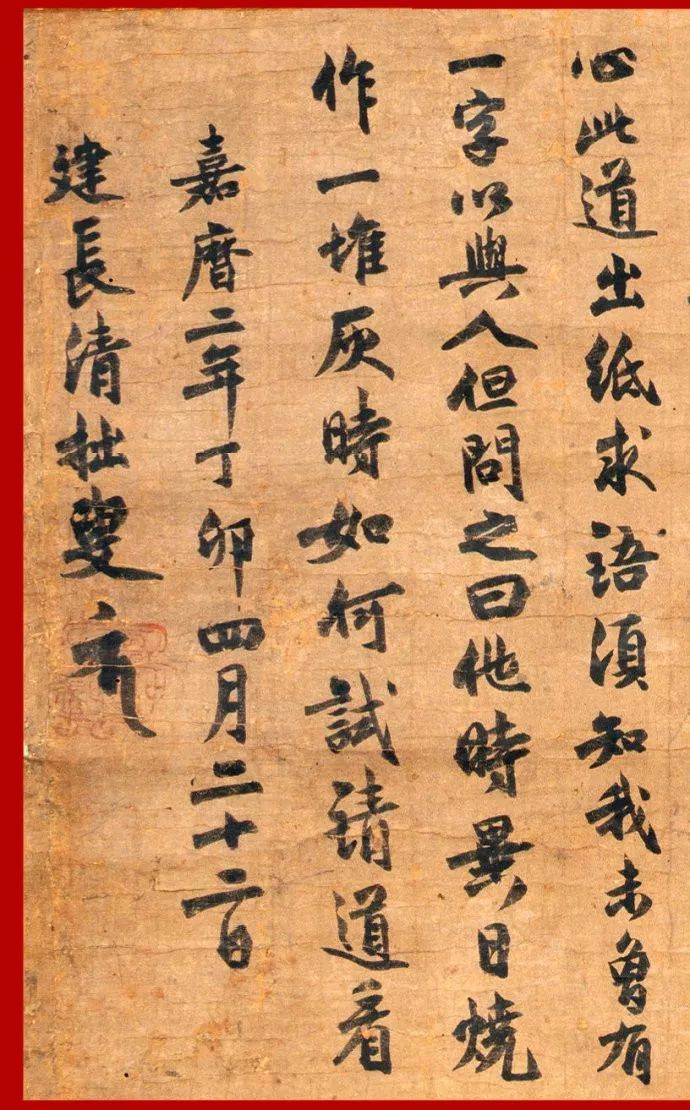 心此道出紙求語須知我未曾有
一字以與人但問之曰他時異日燒
作一堆灰時如何試請道看
嘉曆二年丁卯四月二十六日
建長清拙叟